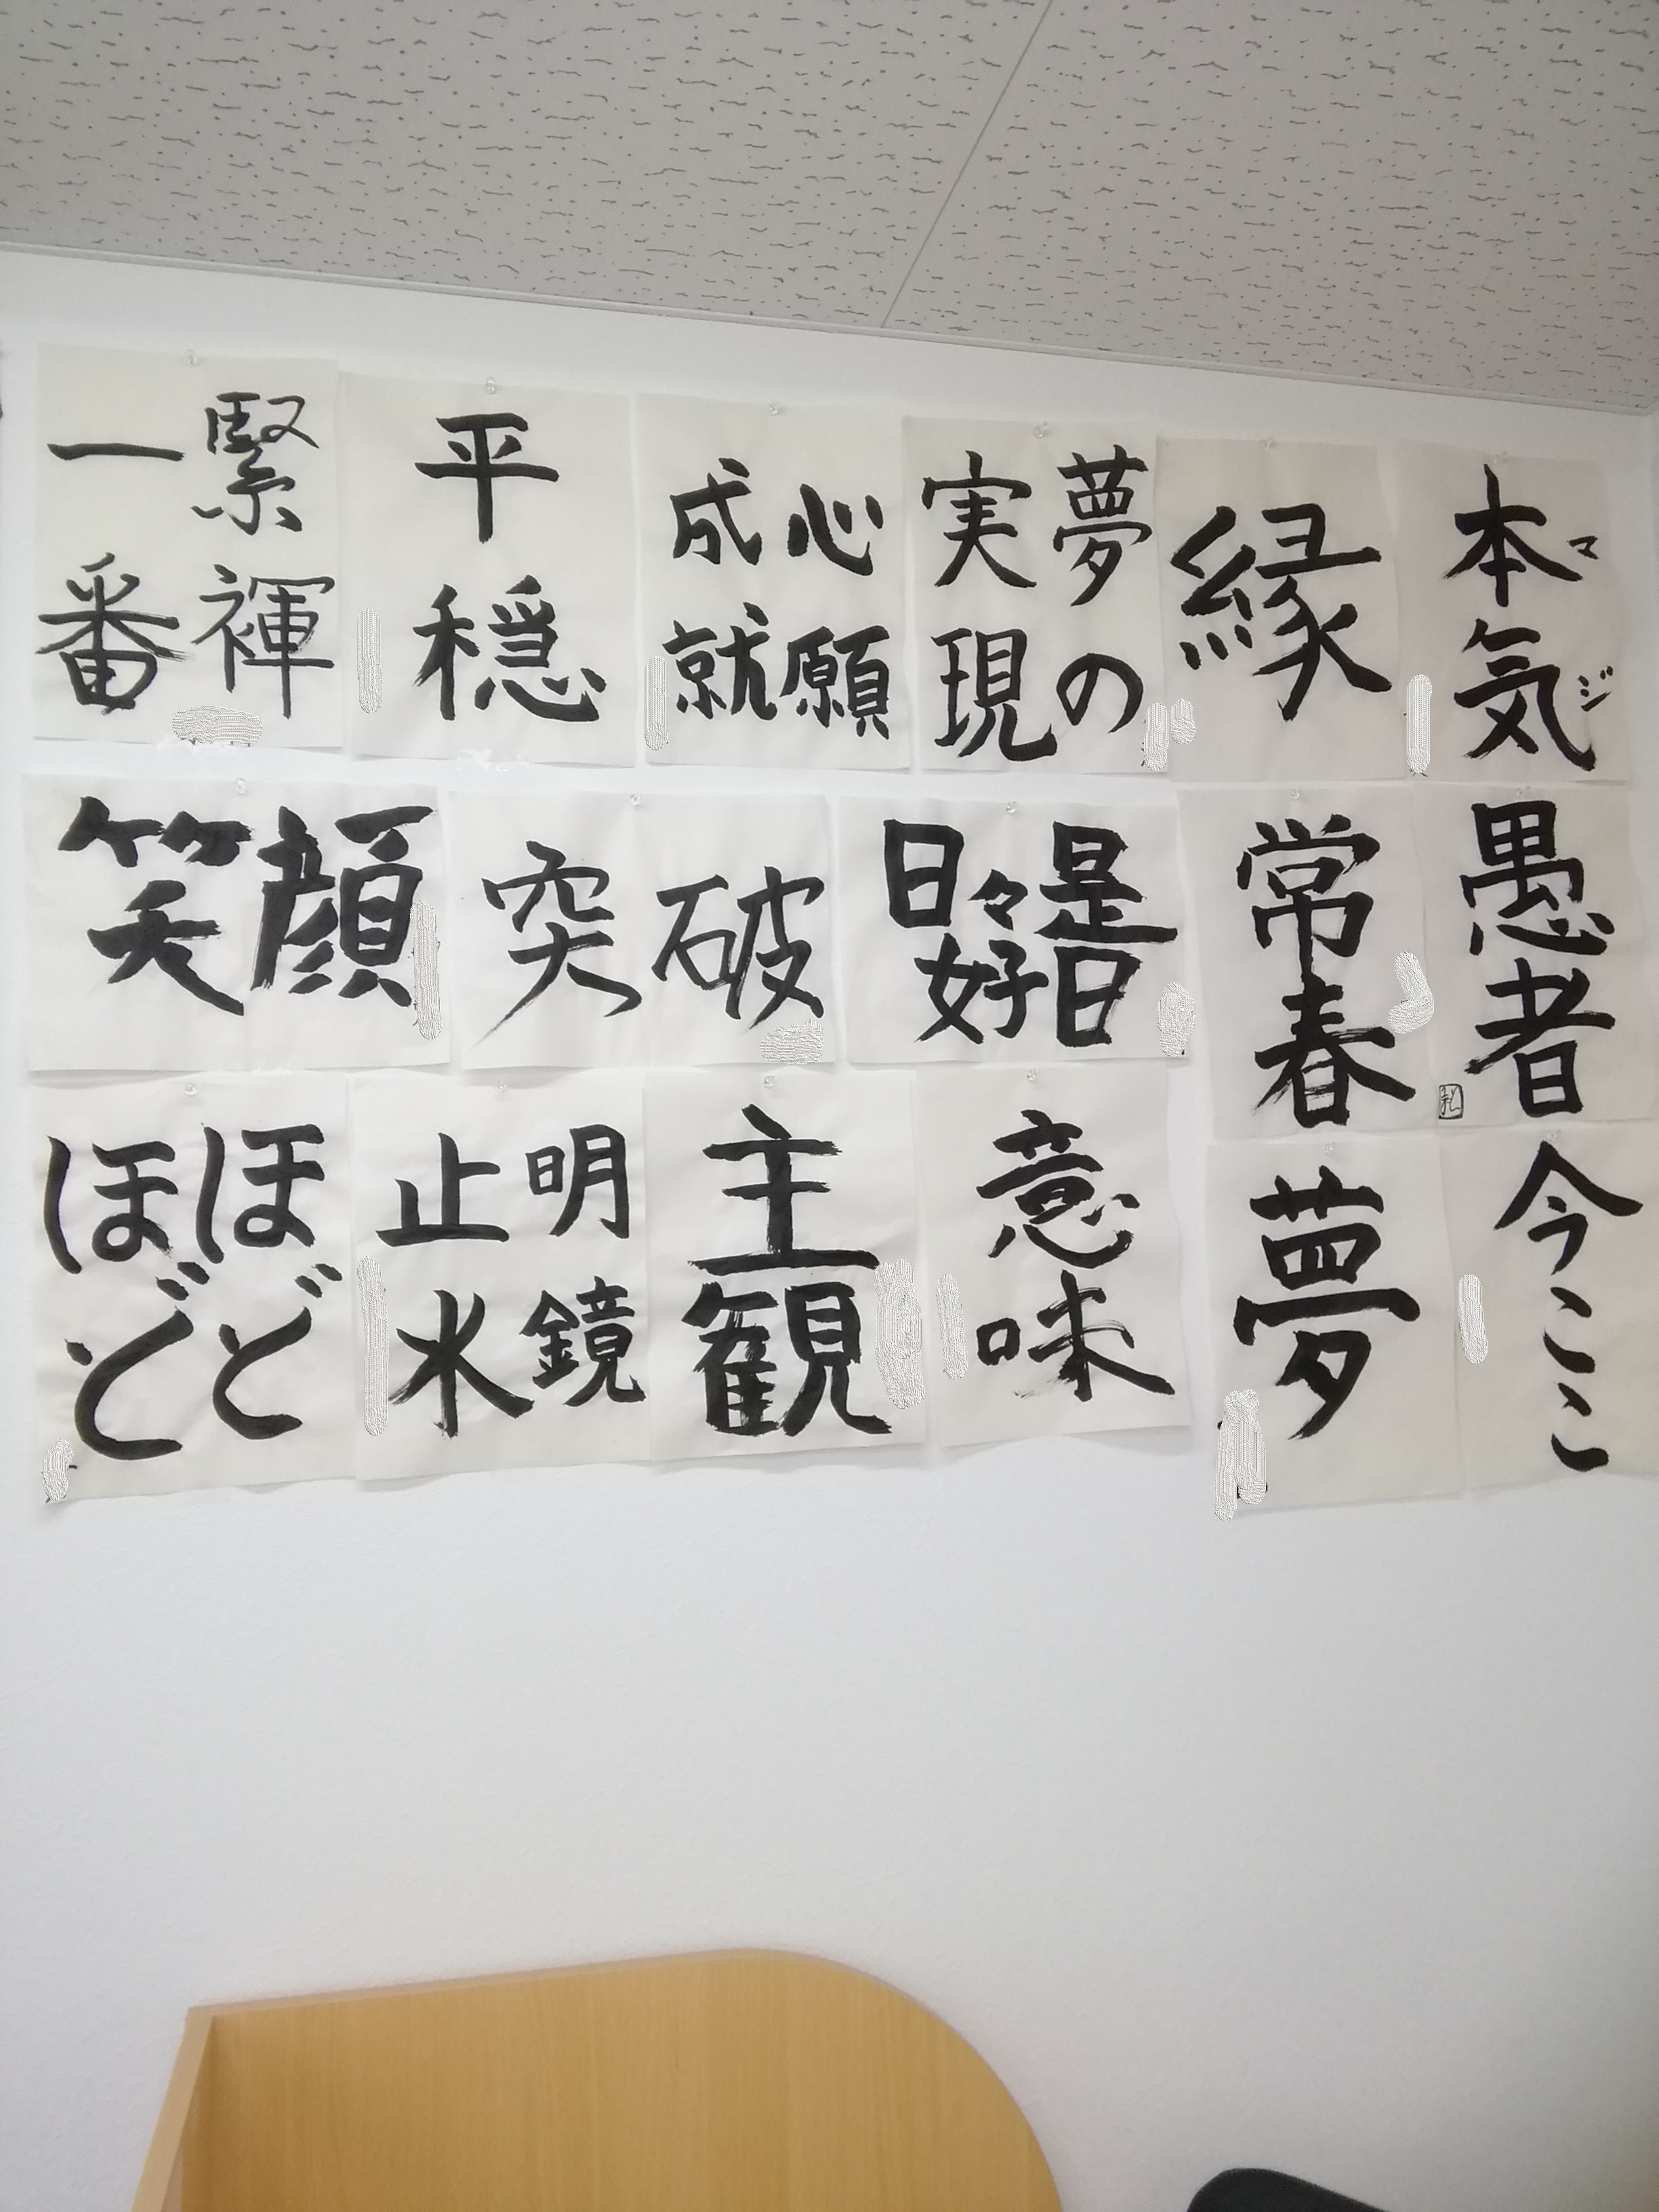 本気
マジ
縁
夢の
実現
心願
成就
平穏
緊褌
一番
愚者
常春
日々是
好日
突破
笑顔
今ここ
夢
意味
主観
明鏡
止水
ほど
ほど